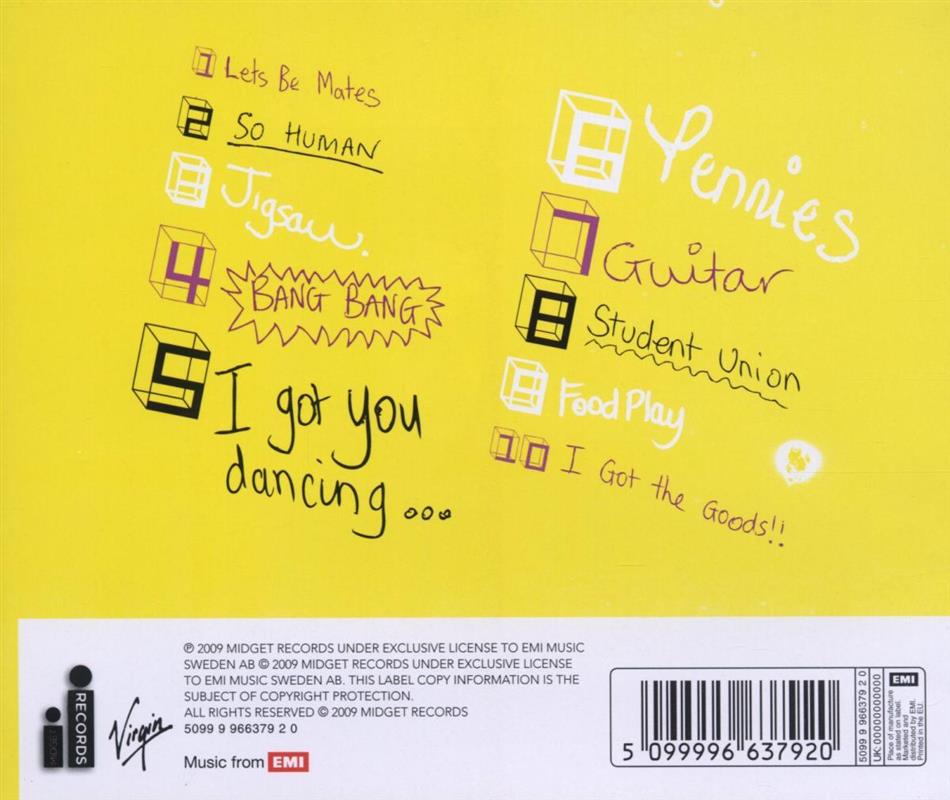 1 Lets Be Mates
2 SO HUMAN
3 Jigsaw.
4 BANG BANG
5 I got you
dancing...
6 Pennies
7 Guitar
8 Student Union
9 Food Play
10 I Got the Goods!!
RECORDS
Virgin
℗ 2009 MIDGET RECORDS UNDER EXCLUSIVE LICENSE TO EMI MUSIC
SWEDEN AB © 2009 MIDGET RECORDS UNDER EXCLUSIVE LICENSE
TO EMI MUSIC SWEDEN AB. THIS LABEL COPY INFORMATION IS THE
SUBJECT OF COPYRIGHT PROTECTION.
ALL RIGHTS RESERVED © 2009 MIDGET RECORDS
5099 9 966379 2 0
Music from EMI
5 099996 637920
5099 9 966379 2 0
UK:000000000000
EMI
Place of manufacture
as stated on label.
Marketed and
distributed by EMI.
Printed in the EU.